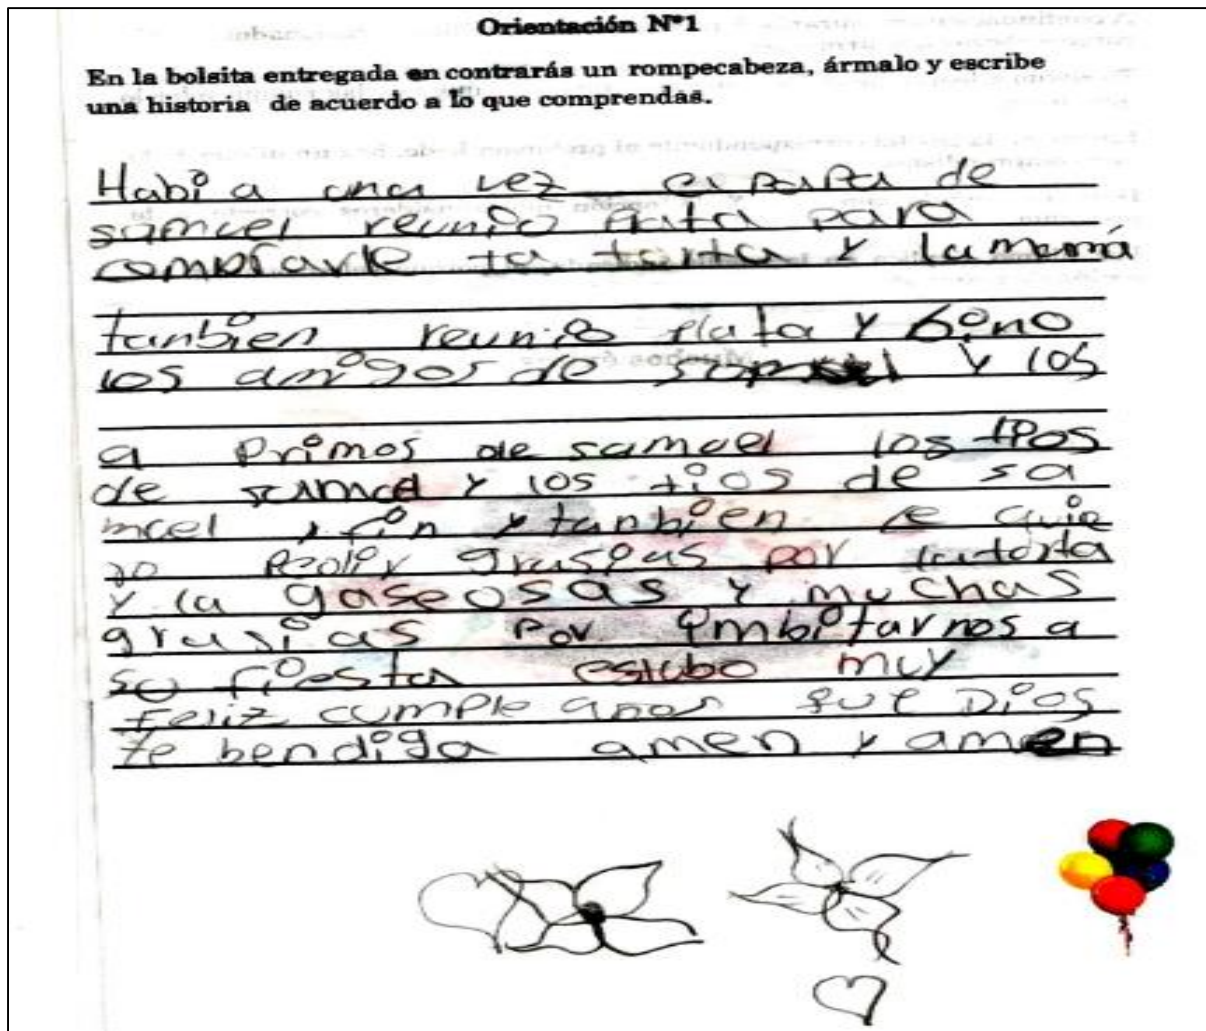 Orientación Nº1
En la bolsita entregada en contrarás un rompecabeza, ármalo y escribe
una historia de acuerdo a lo que comprendas.
Habi a una vez el papa de
samuel reunio plata para
comprarle la torta y la mamá
tanbien reunio plata y bino
los amigos de y los
a primos de samuel los tios
de samuel y los tios de sa
muel y fin y tanbien le quie
ro pedir grasias por la torta
y la gaseosas y muchas
grasias por imbitarnos a
su fiesta estubo muy
feliz cumple anos que Dios
te bendiga amen y amen